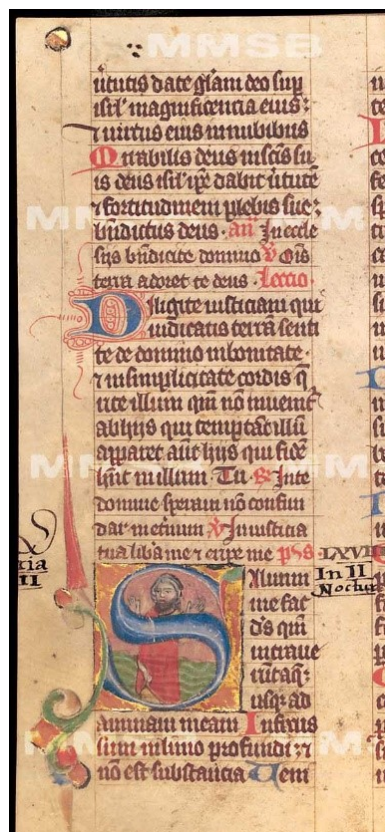 MMSB
ūtutis date gl̄am deo sup
isrl' magnificencia eius:
⁊ uirtus eius in nubibus
Mirabilis deus in scīs su
is deus isrl' ip̄e dabit ūtutē
⁊ fortitudinem plebis sue:
bn̄dictus deus. an̄ In eccle
sijs bn̄dicite domino V̄ Om̄s
terra adoret te deus. Lectio.
Diligite iusticiam qui
iudicatis terrā senti
te de domino in bonitate.
⁊ in simplicitate cordis q̄
rite illum qm̄ nō inuenit~
ab hijs qui temptāt illū
apparet aūt hijs qui fidē
hn̄t in illum. Tu. R̄ In te
domine speraui nō confun
dar in et̄num V̄ In iusticia
tua libera me ⁊ eripe me ps̄
LXVIII
In II
Noctur
II
Saluum
me fac
d̄s qm̄
intraue
runt aq̄:
usq; ad
animam meam Infixus
sum in limo profundi: ⁊
nō est substancia Veni